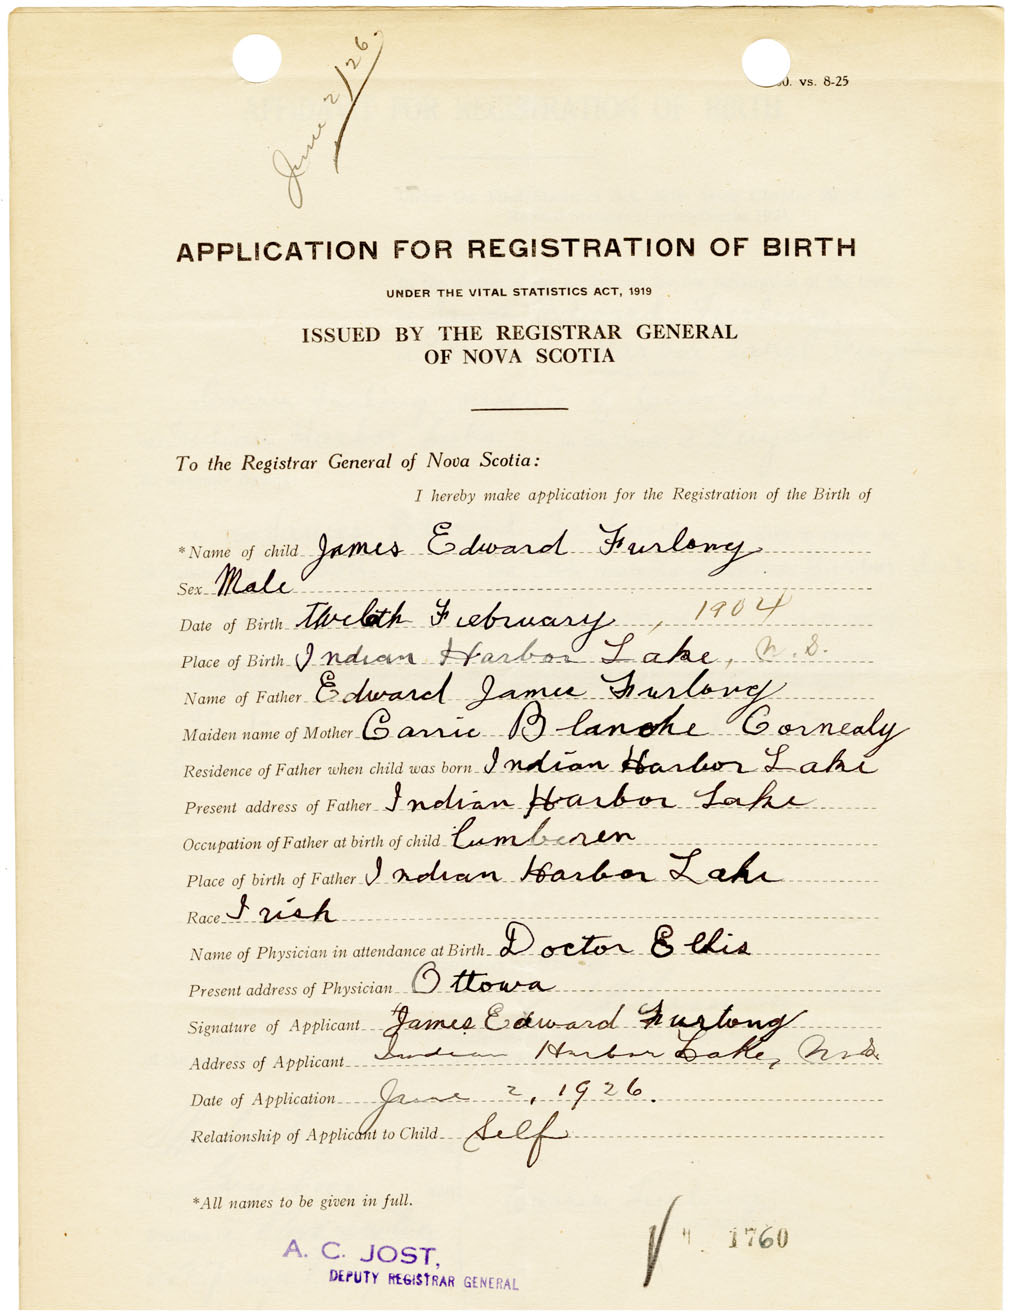 June 2/26.
00. vs. 8-25
APPLICATION FOR REGISTRATION OF BIRTH
UNDER THE VITAL STATISTICS ACT, 1919
ISSUED BY THE REGISTRAR GENERAL
OF NOVA SCOTIA
To the Registrar General of Nova Scotia:
I hereby make application for the Registration of the Birth of
*Name of child James Edward Furlong
Sex Male
Date of Birth twelth Febuary, 1904
Place of Birth Indian Harbor Lake, N.S.
Name of Father Edward James Furlong
Maiden name of Mother Carrie Blanche Cornealy
Residence of Father when child was born Indian Harbor Lake
Present address of Father Indian Harbor Lake
Occupation of Father at birth of child
Place of birth of Father Indian Harbor Lake
Race Irish
Name of Physician in attendance at Birth Doctor Ellis
Present address of Physician Ottowa
Signature of Applicant James Edward Furlong
Address of Applicant Indian Harbor Lake, N.S.
Date of Application June 2, 1926.
Relationship of Applicant to Child Self
*All names to be given in full.
1760
A. C. JOST,
DEPUTY REGISTRAR GENERAL